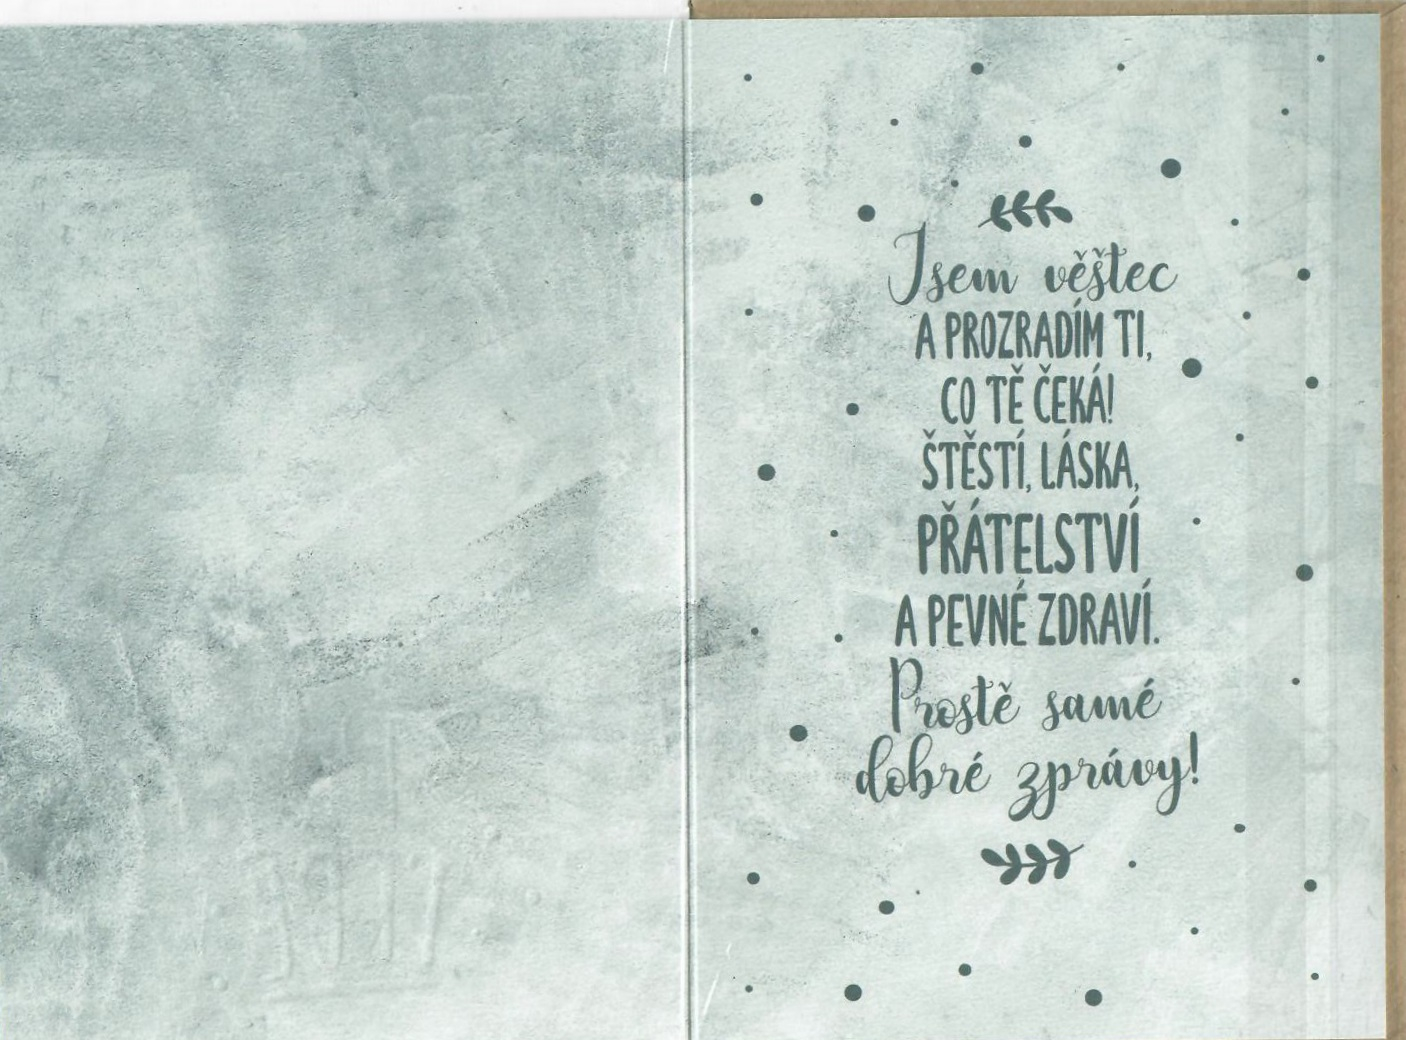 Jsem věštec
A PROZRADÍM TI,
CO TĚ ČEKÁ!
ŠTĚSTÍ, LÁSKA,
PŘÁTELSTVÍ
A PEVNÉ ZDRAVÍ.
Prostě samé
dobré zprávy!